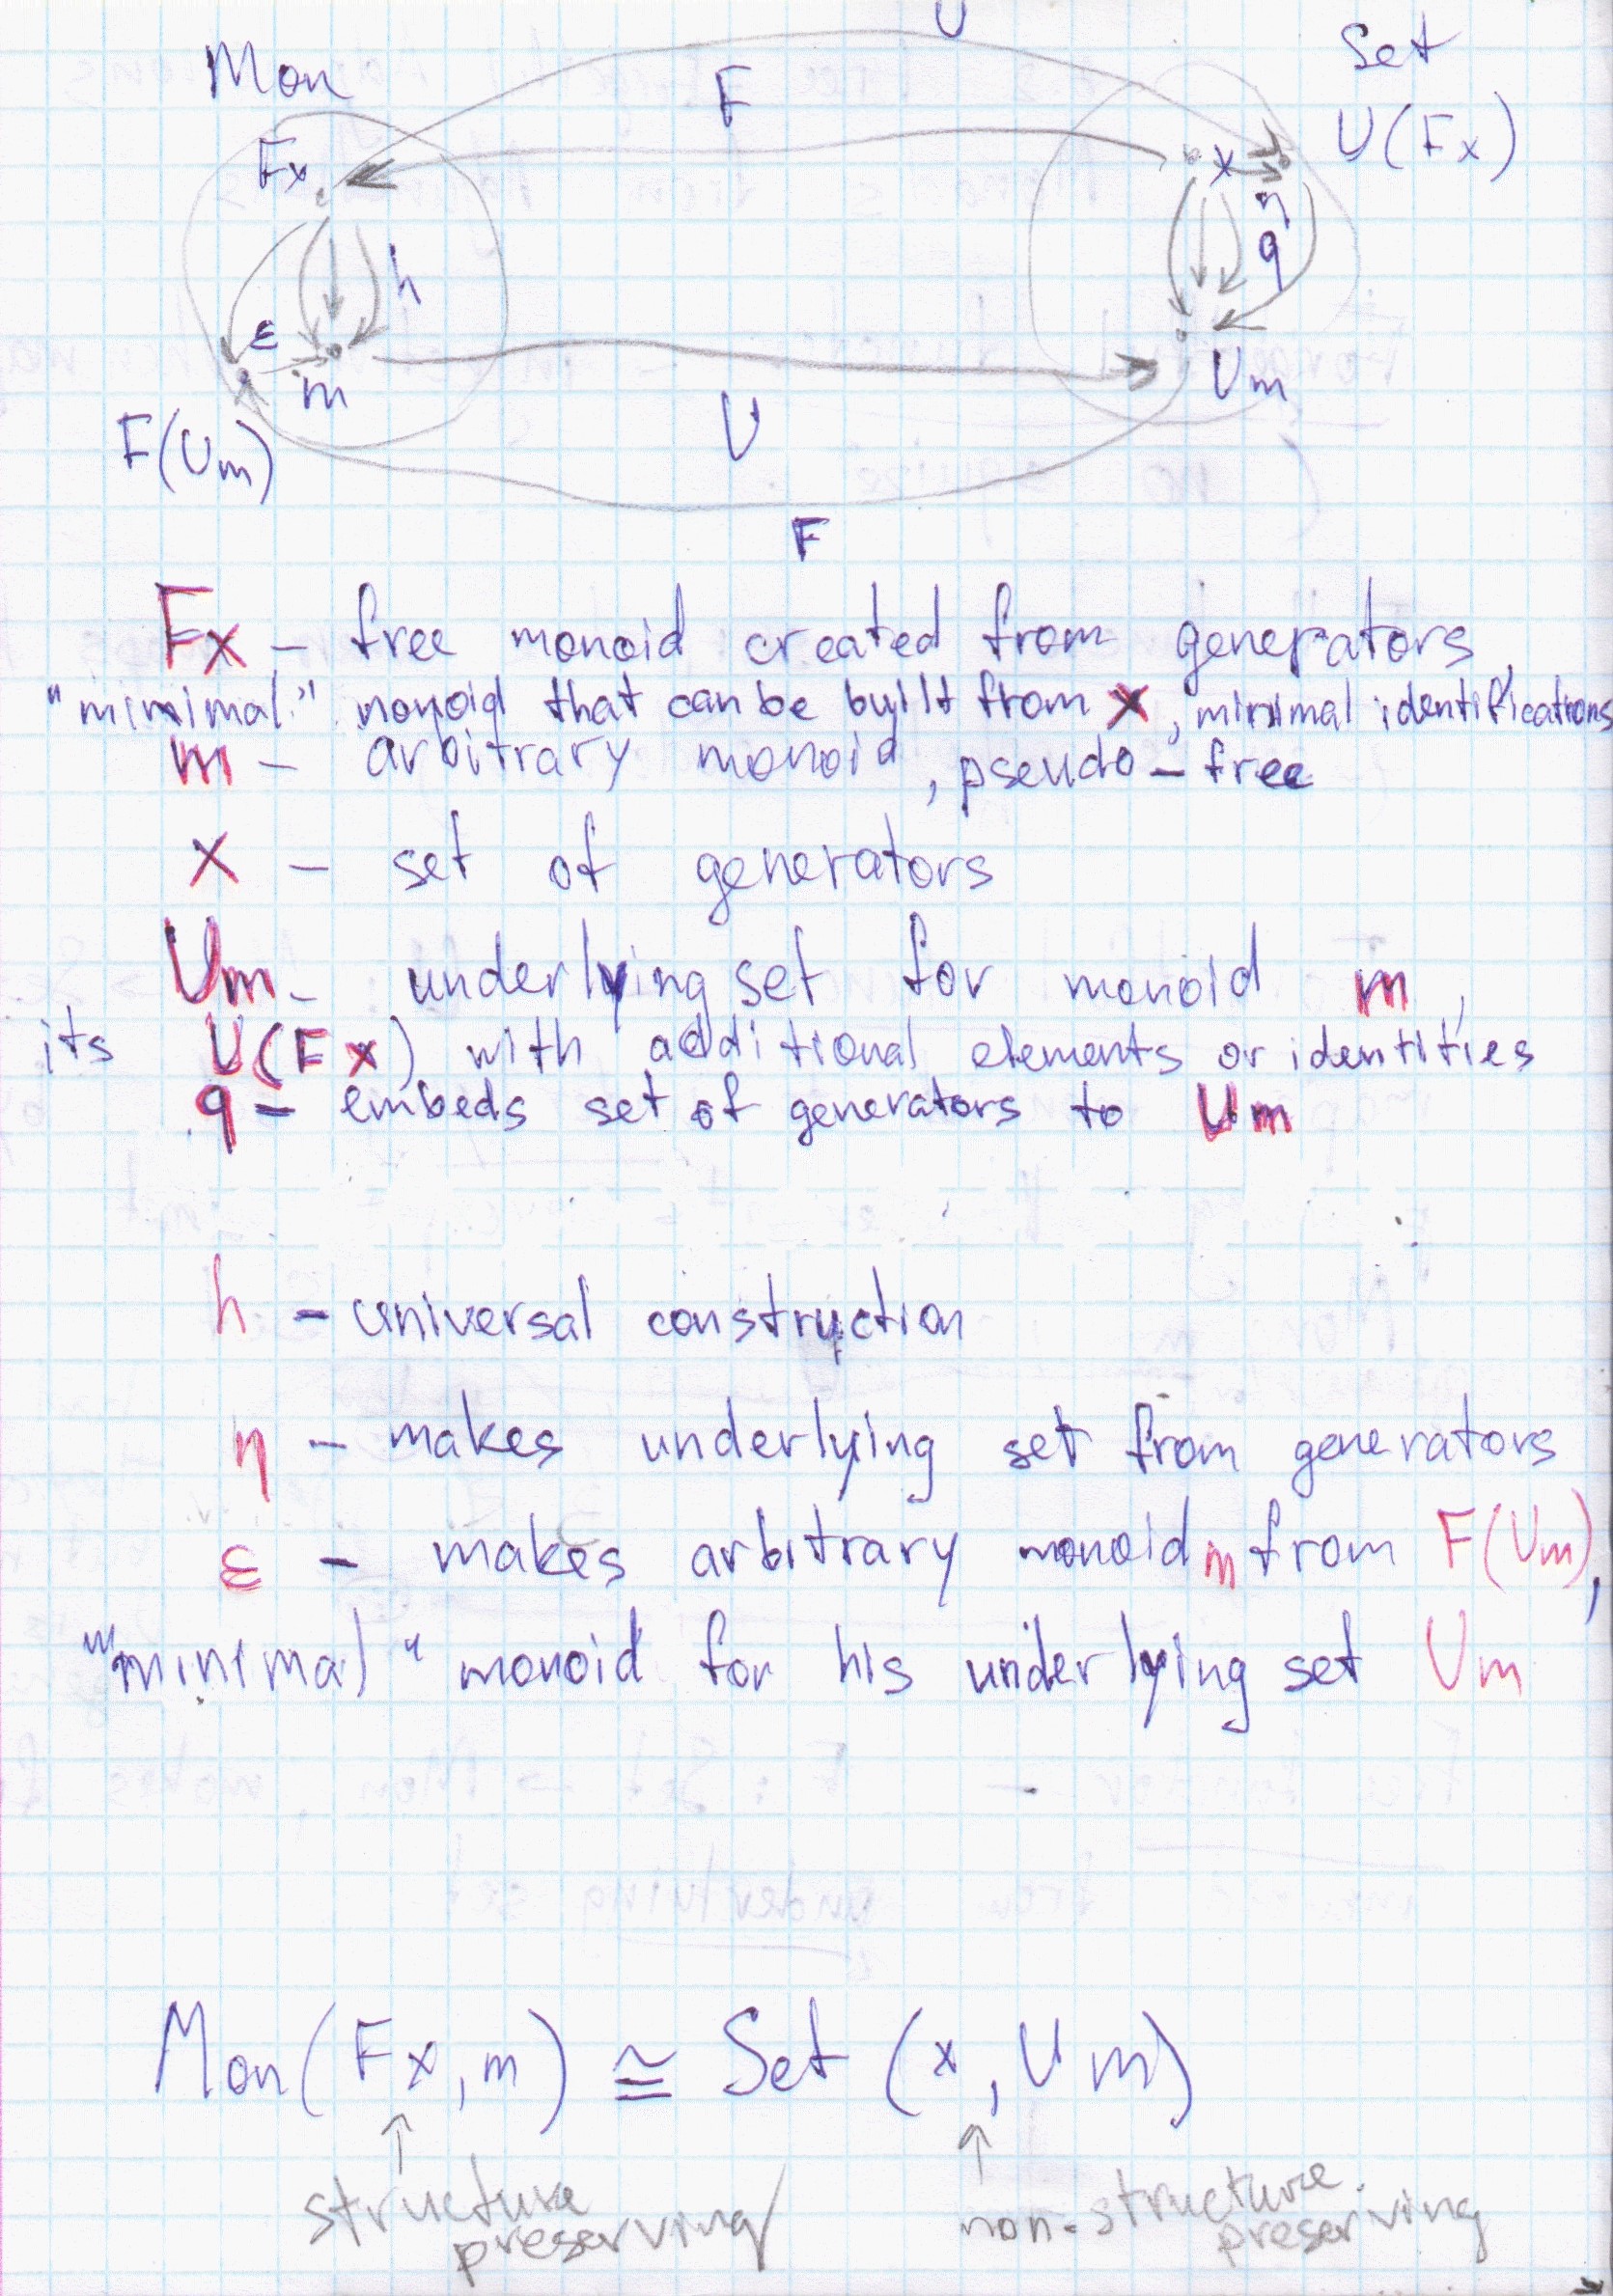 U
Mon
F
Set
Fx
x
U(Fx)
η
h
q
ε
m
Um
F(Um)
U
F
Fx – free monoid created from generators,
"minimal" monoid that can be built from x, minimal identifications
m – arbitrary monoid, pseudo-free
x – set of generators
Um – underlying set for monoid m,
its U(Fx) with additional elements or identities
q – embeds set of generators to Um
h – universal construction
η – makes underlying set from generators
ε – makes arbitrary monoid m from F(Um),
"minimal" monoid for his underlying set Um
Mon(Fx, m) ≅ Set (x, Um)
↑ ↑
structure non-structure
preserving preserving